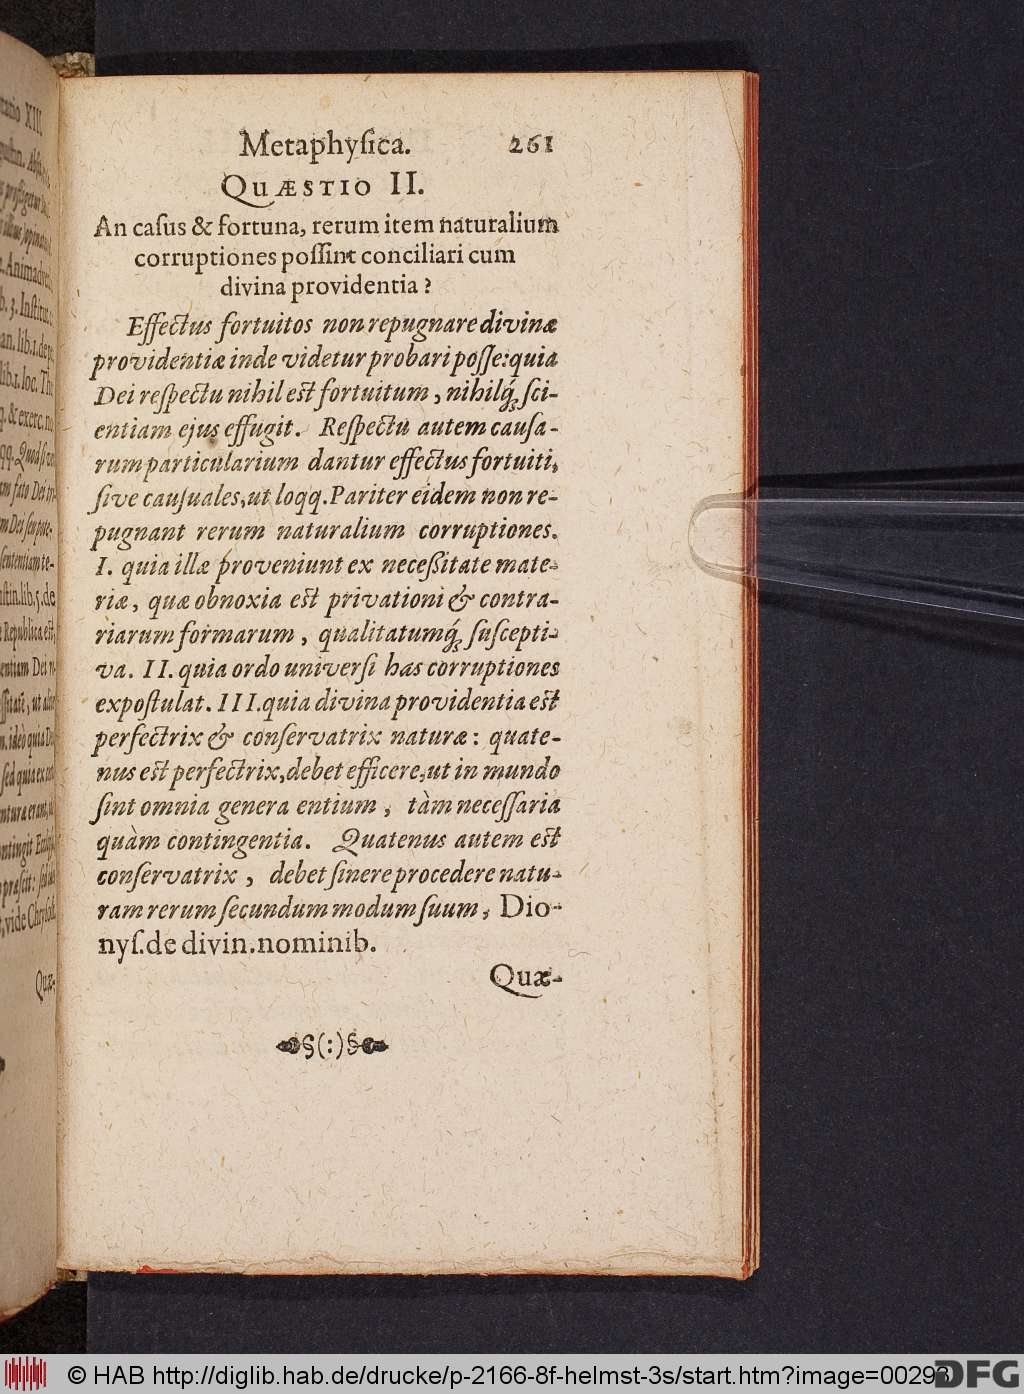 tatio XIII.
Metaphysica. 261
QUÆSTIO II.
An casus & fortuna, rerum item naturalium
corruptiones possint conciliari cum
divina providentia?
Effectus fortuitos non repugnare divinæ
providentiæ inde videtur probari posse: quia
Dei respectu nihil est fortuitum, nihilq́; sci-
entiam ejus effugit. Respectu autem causa-
rum particularium dantur effectus fortuiti,
sive causuales, ut loqq. Pariter eidem non re-
pugnant rerum naturalium corruptiones.
I. quia illæ proveniunt ex necessitate mate-
riæ, quæ obnoxia est privationi & contra-
riarum formarum, qualitatumq́; suscepti-
va. II. quia ordo universi has corruptiones
expostulat. III. quia divina providentia est
perfectrix & conservatrix naturæ: quate-
nus est perfectrix, debet efficere, ut in mundo
sint omnia genera entium, tàm necessaria
quàm contingentia. Quatenus autem est
conservatrix, debet sinere procedere natu-
ram rerum secundum modum suum, Dio-
nys. de divin. nominib.
Quæ-
§(:)§
Quæ-
© HAB http://diglib.hab.de/drucke/p-2166-8f-helmst-3s/start.htm?image=00293
DFG